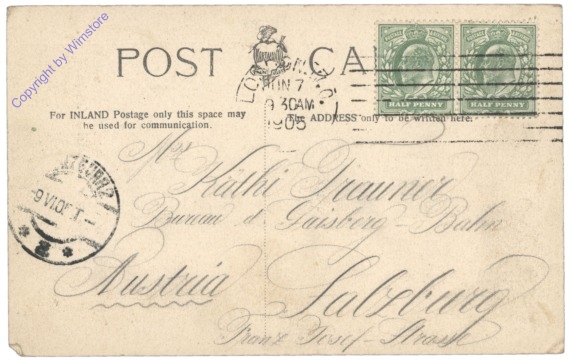 Copyright by Wimstore
POST CA
LONDON. W.C.
JUN 7
9 30AM
1905
HALF PENNY HALF PENNY
For INLAND Postage only this space may
be used for communication.
The ADDRESS only to be written here.
Mrs
Kathi Trauner
Bureau d Gaisberg-Bahn
Austria
Salzburg
Franz Josef-Strasse
9 VI 05
* 2 *